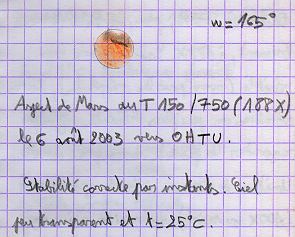 w = 165°
Aspect de Mars au T 150/750 (188X)
le 6 août 2003 vers 0H TU.
Stabilité correcte par instants. Ciel
peu transparent et t = 25°C.